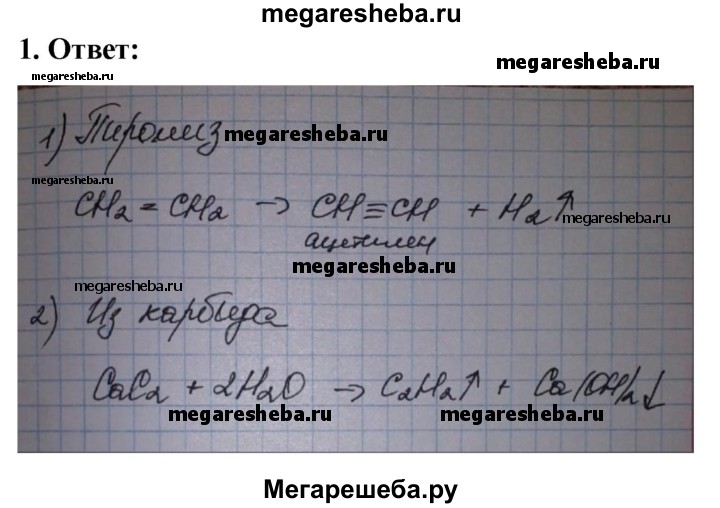 megaresheba.ru
1. Ответ:
megaresheba.ru
megaresheba.ru
1) Пиролиз megaresheba.ru
megaresheba.ru
CH₂ = CH₂ → CH≡CH + H₂↑
megaresheba.ru
ацетилен
megaresheba.ru
megaresheba.ru
2) Из карбида
CaC₂ + 2H₂O → C₂H₂↑ + Ca(OH)₂↓
megaresheba.ru
megaresheba.ru
Мегарешеба.ру